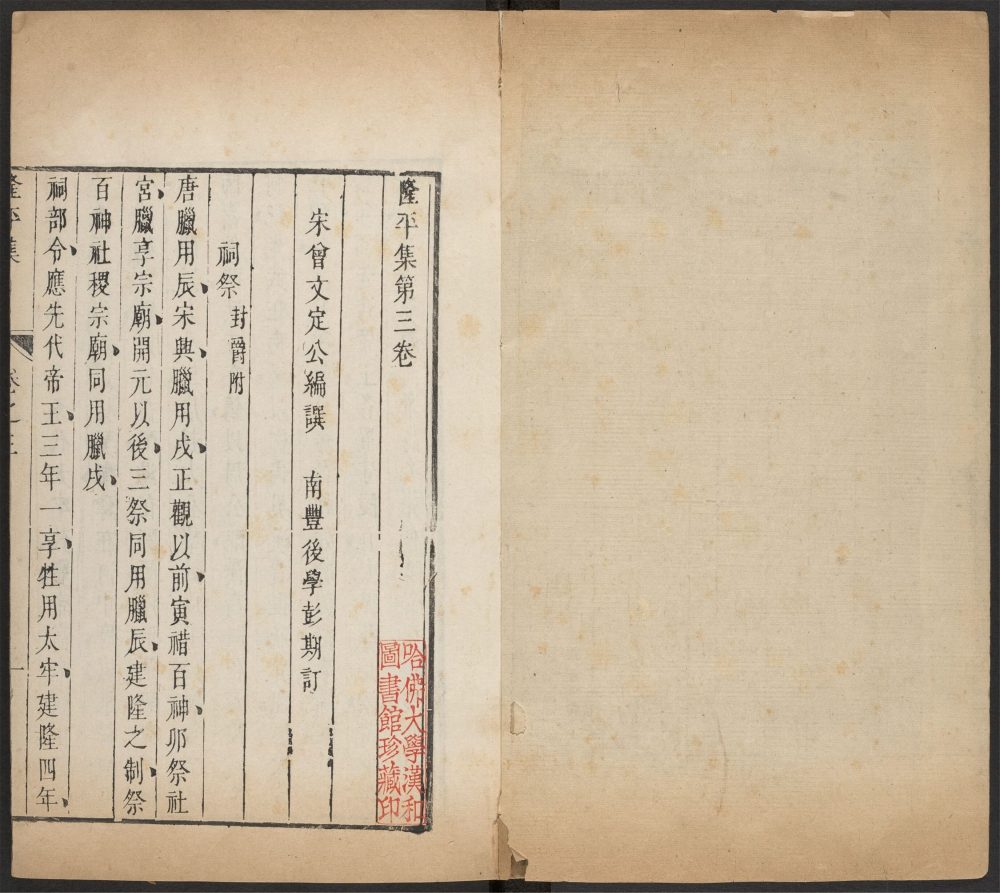 隆平集第三卷
哈佛大學漢和
圖書館珍藏印
宋曾文定公編譔　南豐後學彭期訂
祠祭封爵附
唐臘用辰宋興臘用戌正觀以前寅禮百神卯祭社
宮臘享宗廟開元以後三祭同用臘辰建隆之制祭
百神社稷宗廟同用臘戌
祠部令應先代帝王三年一享牲用太牢建隆四年
隆平集
卷之三
一